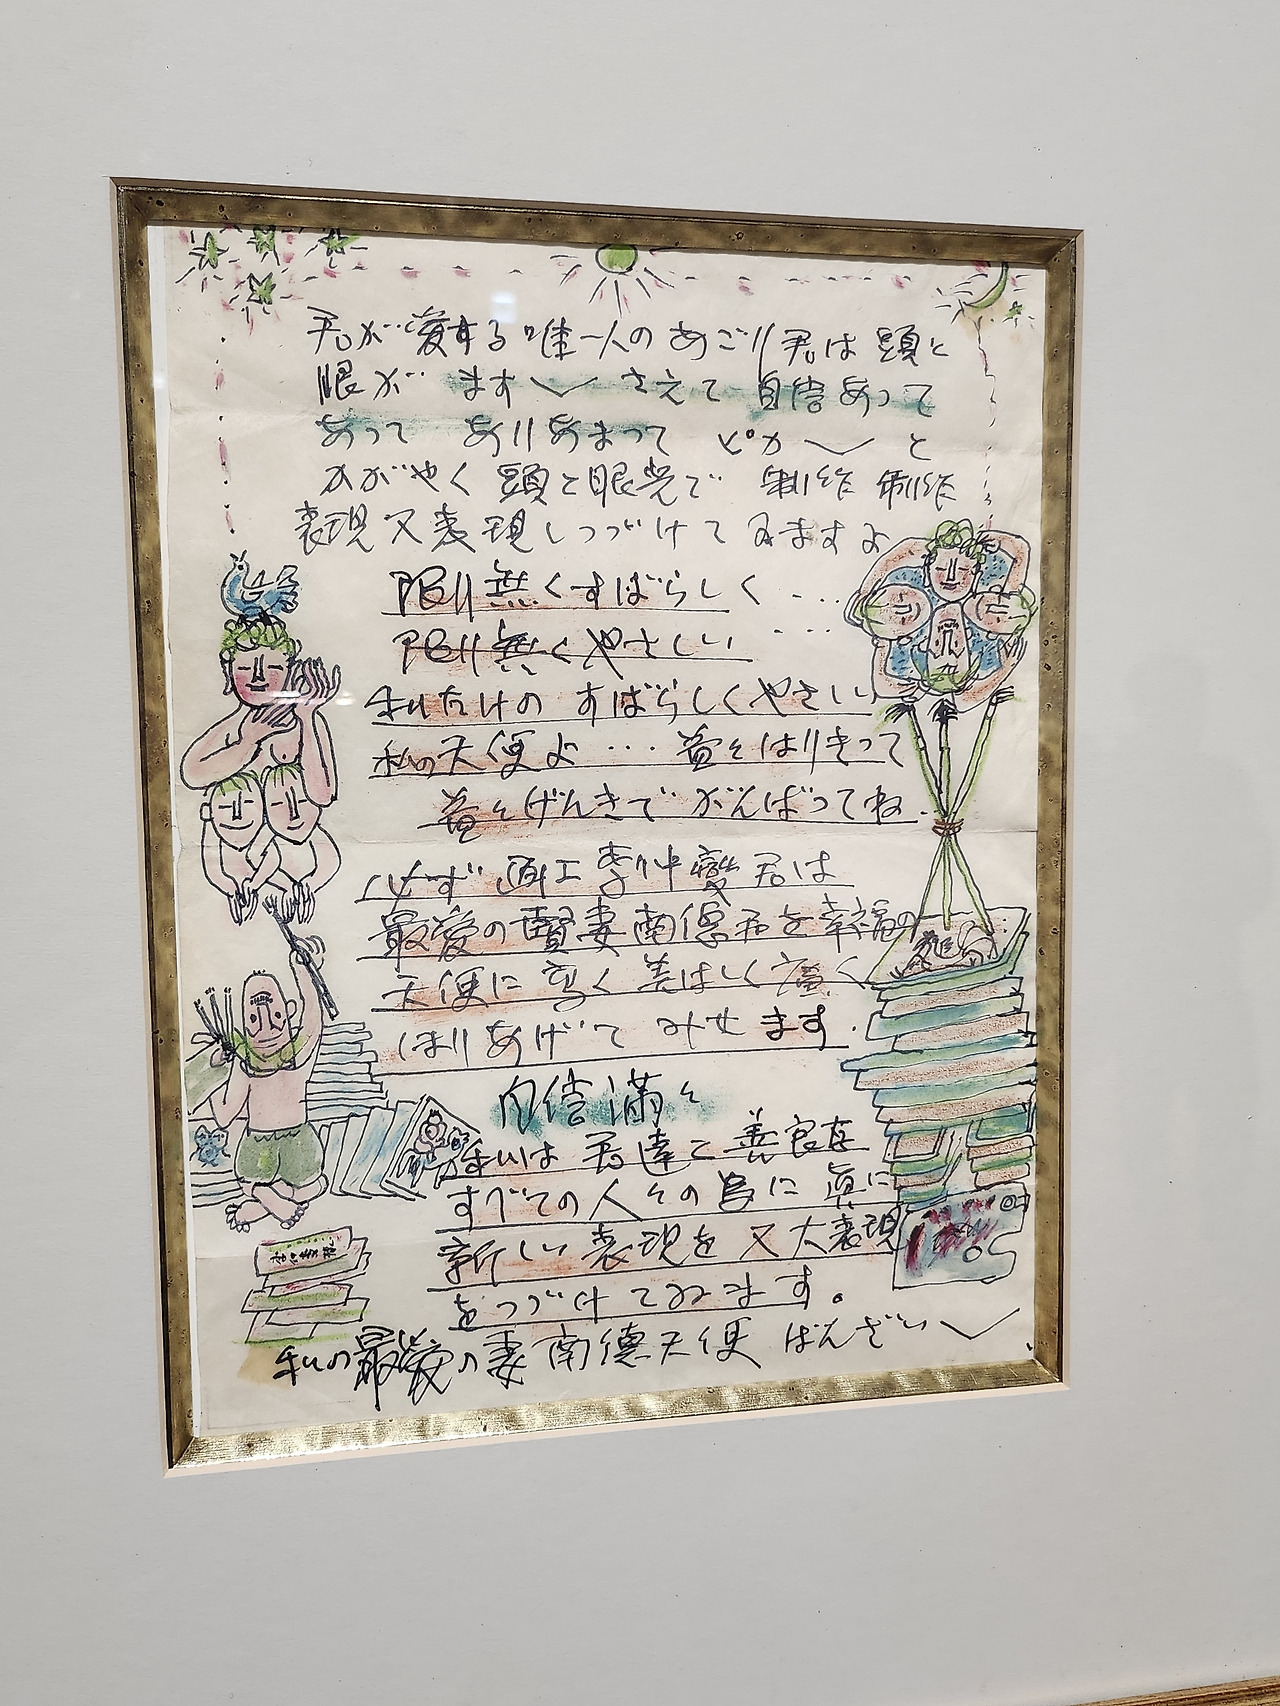 君が愛する唯一人のあごり君は頭と
眼がます〳〵さえて自信あって
あって ありあまって ピカ〳〵と
かがやく頭と眼光で 制作制作
表現又表現しつづけてゐますよ
限り無くすばらしく・・・
限り無くやさしい・・・
私だけの すばらしくやさしい
私の天使よ・・・益々はりきって
益々げんきで がんばってね.
必ず画工李仲燮君は
最愛の賢妻南德君を幸福の
天使に高く美しく広く
はりあげて みせます.
自信満々
私は 君達と善良な
すべての人々の為に 真に
新しい表現を 又大表現
をつづけてゐます。
私の最愛の妻南德天使 ばんざい〳〵